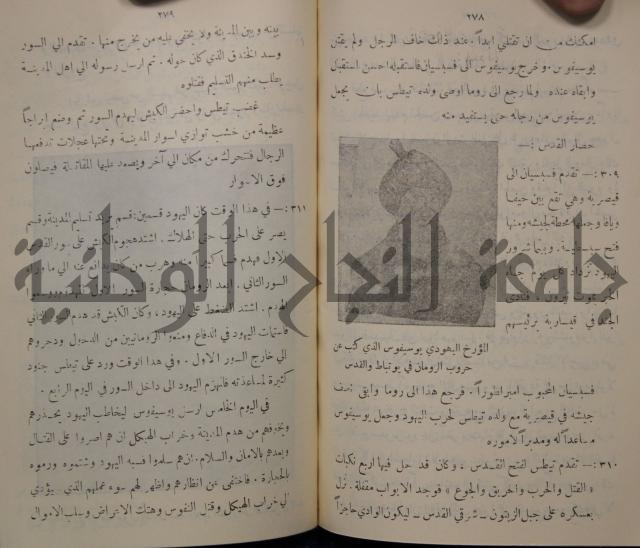 ٢٧٨
امكنك من ان تقتلني ابداً. عند ذلك خاف الرجل ولم يقتل
يوسيفوس. وخرج يوسيفوس الى فسبسيان فاستقبله احسن استقبال
وابقاه عنده. ولما رجع الى روما اوصى ولده تيطس بان يجعل
يوسيفوس من رجاله حتى يستفيد منه
حصار القدس :—
٣٠٩ :— تقدم فسبسيان الى
قيصرية وهي تقع بين حيفا
ويافا وجعلها محطة لجيشه ومنها
فتح
اليهود تزداد يوم
الجند في قيسارية برئيسهم
المؤرخ اليهودي يوسيفوس الذي كتب عن
حروب الرومان في يوتباط والقدس
فسبسيان المحبوب امبراطوراً. فرجع هذا الى روما وابقى نصف
جيشه في قيصرية مع ولده تيطس لحرب اليهود وجعل يوسيفوس
مساعداً له ومدبراً لاموره
٣١٠ :— تقدم تيطس لفتح القدس. وكان قد حل فيها اربع نكبات
« القتل والحرب والحريق والجوع » فوجد الابواب مقفلة. نزل
بعسكره على جبل الزيتون — شرقي القدس — ليكون الوادي حاجزاً
٢٧٩
بينه وبين المدينة ولا يخفى عليه من يخرج منها. تقدم الى السور
وسد الخندق الذي كان حوله. ثم ارسل رسوله الى اهل المدينة
يطلب منهم التسليم فقتلوه
غضب تيطس واحضر الكبش ليهدم السور ثم وضع ابراجاً
عظيمة من خشب توازي اسوار المدينة وتحتها عجلات تدفعها
الرجال فتتحرك من مكان الى آخر ويصعد عليها المقاتلة فيصلون
فوق الاسوار
٣١١ :— في هذا الوقت كان اليهود قسمين: قسم يريد تسليم المدينة وقسم
يصر على الحرب حتى الهلاك. اشتد هجوم الكبش على سور القدس
الاول فهدم قسماً كبيراً منه وهرب من كان يدافع عنه الى ما وراء
السور الثاني. ابعد الرومان حجارة السور الاول
الهدم. اشتد الضغط على اليهود، وكان الكبش قد هدم السور الثاني
فاستمات اليهود في الدفاع ومنعوا الرومانيين من الدخول ودحروهم
الى خارج السور الاول. وفي هذا الوقت ورد على تيطس جنود
كثيرة لمساعدته فانهزم اليهود الى داخل السور في اليوم الرابع.
في اليوم الخامس ارسل يوسيفوس ليخاطب اليهود يحذرهم
ويخوفهم من هدم المدينة وخراب الهيكل ان هم اصروا على القتال
ويعدهم بالامان والسلام. ان هم سلموا فسبه اليهود وشتموه ورموه
بالحجارة. فاختفى عن انظارهم واظهر لهم سوء عملهم الذي يؤدي
الى خراب الهيكل وقتل النفوس وهتك الاعراض وسلب الاموال
جامعة النجاح الوطنية